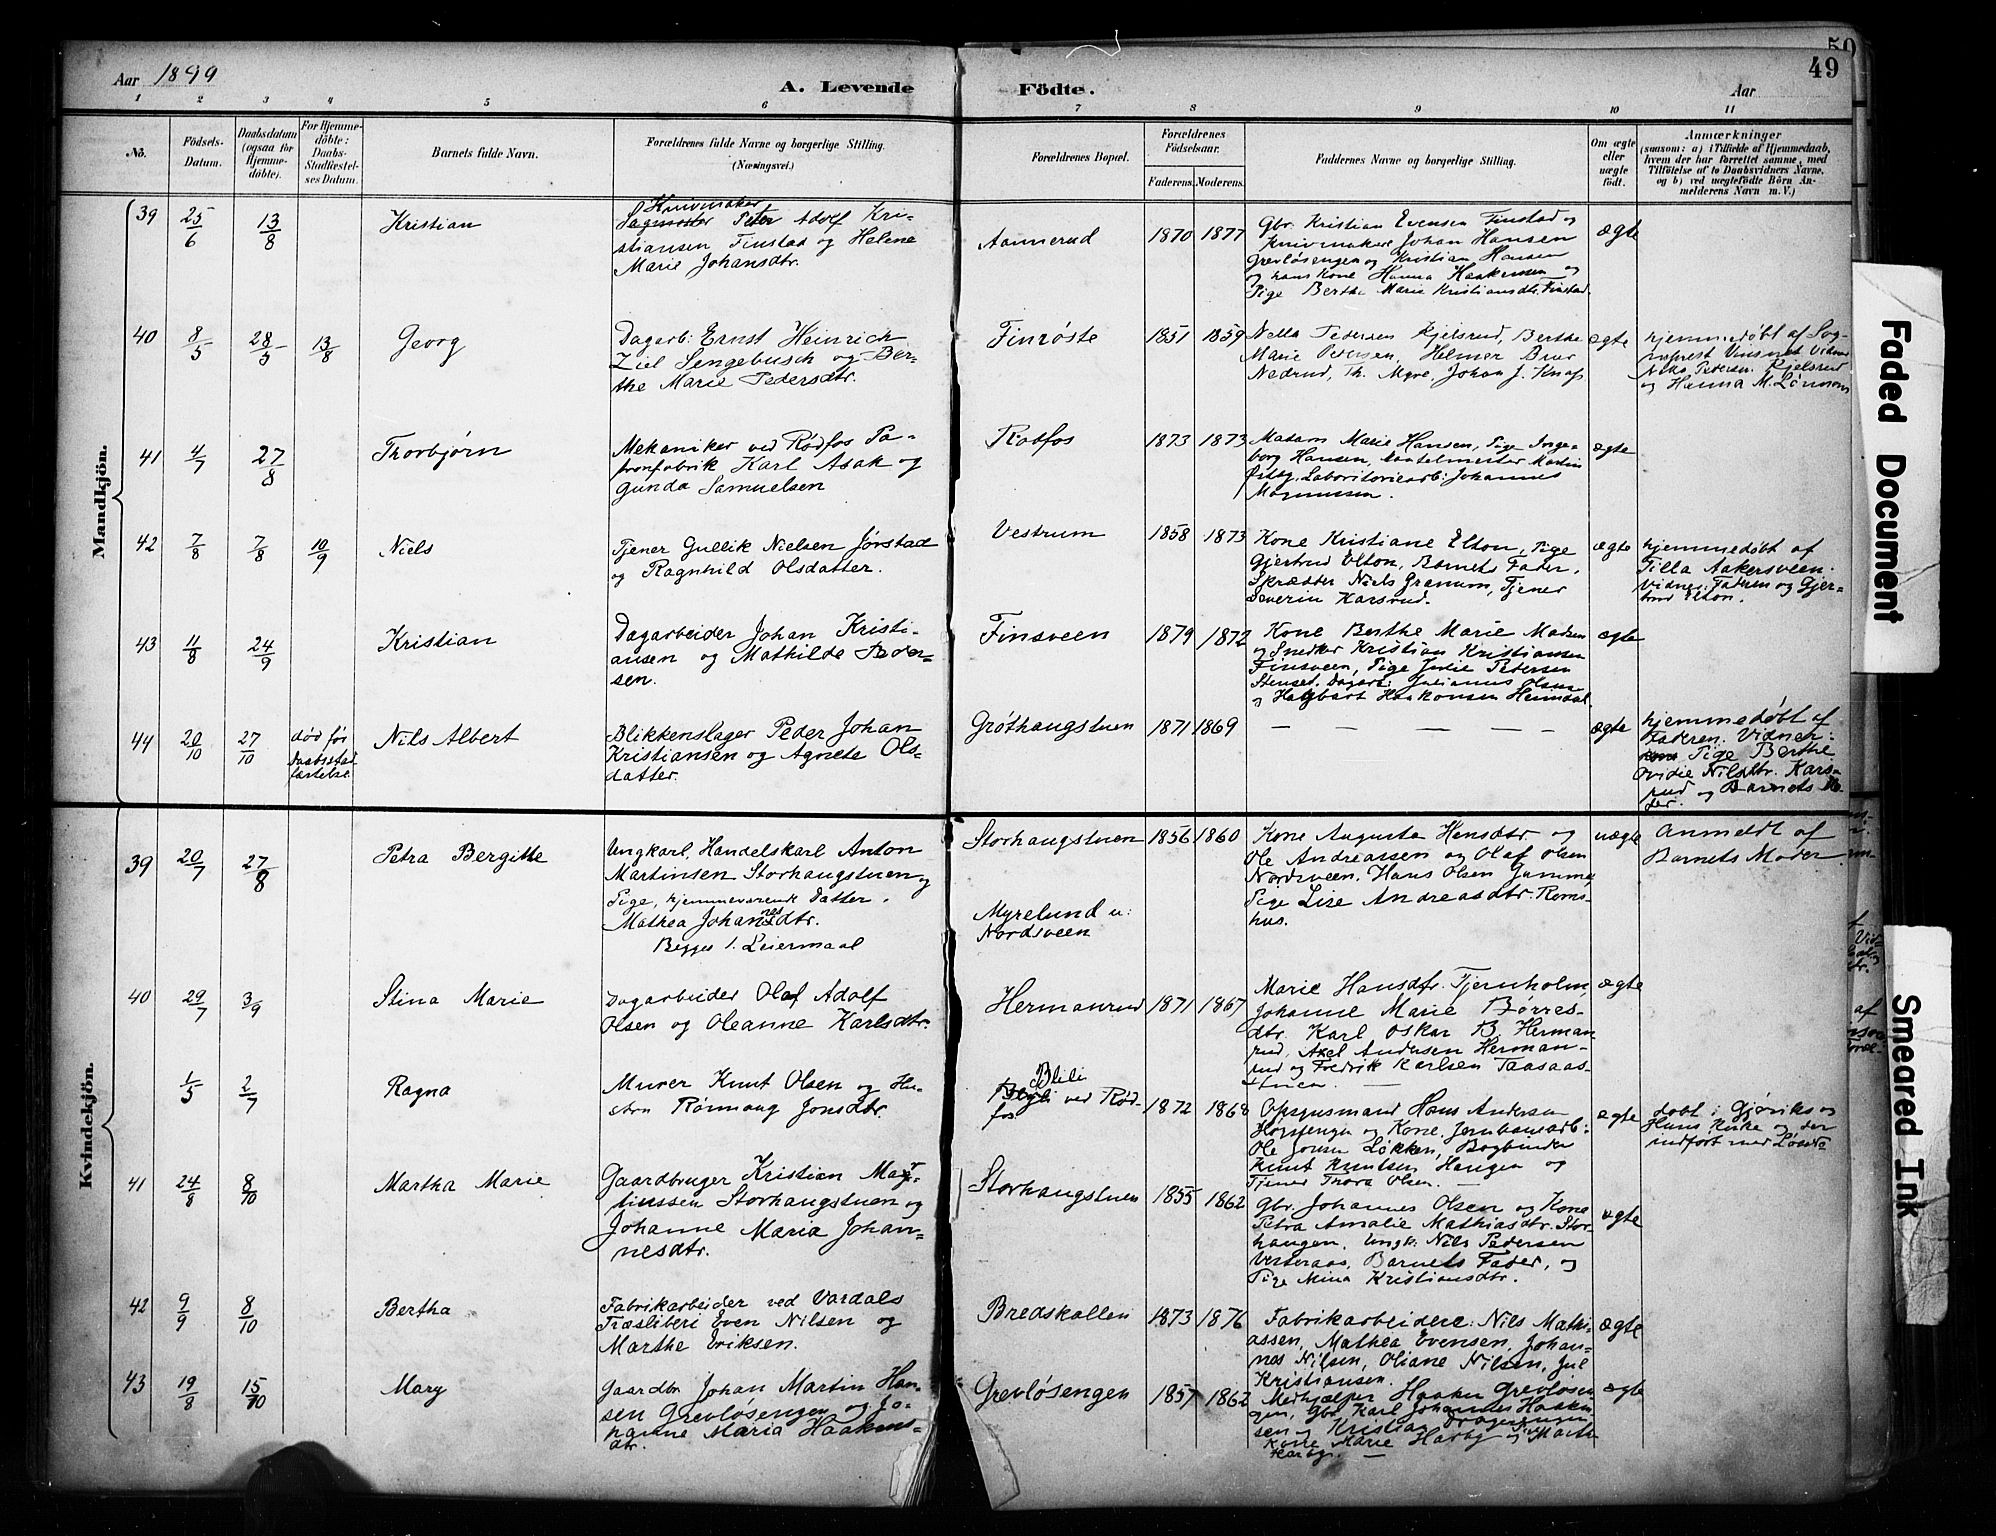 50
49
Aar 1899
A. Levende
Födte.
Aar
1 2 3 4 5 6 7 8 9 10 11
No.
Födsels-Datum.
Daabsdatum (ogsaa for Hjemme-döbte).
For Hjemme-döbte: Daabs-Stadfæstel-ses Datum.
Barnets fulde Navn.
Forældrenes fulde Navne og borgerlige Stilling. (Næringsvei.)
Forældrenes Bopæl.
Forældrenes Födselsaar.
Faderens. Moderens.
Faddernes Navne og borgerlige Stilling.
Om ægte eller uægte födt.
Anmærkninger
(saasom: a) i Tilfælde af Hjemmedaab, hvem der har forrettet samme, med Tilföielse af to Daabsvidners Navne, og b) ved uægtefödte Börn Anmelderens Navn m. V.)
Mandkjön.
39 25/6 13/8 Kristian
Knivmaker
Sagmester Peter Adolf Kri-
stiansen Finstad og Helene
Marie Johansdtr.
Aannerud 1870 1877
Gbr. Kristian Evensen Finstad og
Knivmakere Johan Hansen
Grevløsengen og Kristian Hansen
og hans Kone Hanna Haakensen og
Pige Berthe Marie Kristiansdtr. Finstad.
ægte
40 8/5 28/5 13/8 Georg
Dagarb: Ernst Heinrich
Ziel Sengebusch og Ber-
the Marie Pedersdtr.
Finrøste 1851 1859
Nella Pedersen Kjelsrud, Berthe
Marie Petersen, Helmer Brur
Nedrud, Th. Myre, Johan J. Knap
ægte
hjemmedøbt af Sog-
neprest
Nella Pedersen Kjelsrud
og Hanna M.
41 4/7 27/8 Thorbjørn
Mekaniker ved Rødfos Pa-
tronfabrik Karl Asak og
Gunda Samuelsen
Rødfos 1873 1873
Madam Marie Hansen, Pige Inge-
borg Hansen, Martin
Østby, Laboritoriearb: Johannes
Magnussen.
ægte
42 7/8 7/8 10/9 Niels
Tjener Gullik Nielsen Jørstad
og Ragnhild Olsdatter.
Vestrum 1858 1873
Kone Kristiane Elton, Pige
Gjertrud Elton, Barnets Fader,
Skrædder Niels Granum, Tjener
Severin Karsrud.
ægte
hjemmedøbt af
Tilla Aakersveen.
Vidner: Faderen og Gjer-
trud Elton.
43 11/8 24/9 Kristian
Dagarbeider Johan Kristi-
ansen og Mathilde Peder-
sen.
Finsveen 1879 1872
Kone Berthe Marie Madsen
og Snedker Kristian Kristiansen
Finsveen, Pige Julie Petersen
Stenset, Dagarb: Julianus Olsen
og Hagbart Haakonsen Heimdal
ægte
44 20/10 27/10 død før
Daabsstad-
fæstelse
Nils Albert
Blikkenslager Peder Johan
Kristiansen og Agnete Ols-
datter.
Grøthaugstuen 1871 1869
— — — — — —
ægte
hjemmedøbt af
Faderen. Vidner:
Pige Berthe
Ovidie Nilsdtr. Kars-
rud og Barnets Mo-
der.
Kvindekjön.
39 20/7 27/8 Petra Bergitte
Ungkarl, Handelskarl Anton
Martinsen Storhaugstuen og
Pige, hjemmeværende Datter,
Mathea Johannesdtr.
Begges 1. Leiermaal
Storhaugstuen 1856 1860
Myrelund u:
Nordsveen
Kone Augusta Hansdtr og
Ole Andreassen og Olaf Olsen
Nordsveen, Hans Olsen
Pige Lise Andreasdtr. Roms-
hus.
uægte
Anmeldt af
Barnets Moder
40 29/7 3/9 Stina Marie
Dagarbeider Olaf Adolf
Olsen og Oleanne Karlsdtr.
Hermanrud 1871 1867
Marie Hansdtr. Tjernholm,
Johanne Marie Børres-
dtr. Karl Oskar B. Herman
rud, Axel Andersen Herman-
rud og Fredrik Karlsen Taasaas-
stuen. —
ægte
1/5 2/7 Ragna
Murer Knut Olsen og Hu-
stru Rønnaug Jonsdtr.
Blili
ved Rød-
fos
1872 1868
Opsynsmand Hans Andersen
og Kone, Jernbanearb:
Ole Jonsen Løkken, Bogbinder
Knut Knutsen Haugen og
Tjener Thora Olsen. —
ægte
døbt i Gjøviks
Kirke og der
indført med
41 24/8 8/10 Martha Marie
Gaardbruger Kristian Mar-
tinssen Storhaugstuen og
Johanne Maria Johan-
nesdtr.
Storhaugstuen 1855 1862
Gbr. Johannes Olsen og Kone
Petra Amalie Mathiasdtr. Stor-
haugen, Ungk: Nils Pedersen
Vesteraas, Barnets Fader, og
Pige Mina Kristiansdtr.
ægte
42 9/9 8/10 Bertha
Fabrikarbeider ved Vardals
Træsliberi Even Nilsen og
Marthe Eriksen.
Bredskallen 1873 1876
Fabrikarbeidere: Nils Mathi-
assen, Mathea Evensen, Johan-
nes Nilsen, Oliane Nilsen, Jul
Kristiansen.
ægte
43 19/8 15/10 Mary
Gaardbr Johan Martin Han-
sen Grevløsengen og Jo-
hanne Maria Haakens-
dtr.
Grevløsengen 1857 1862
Medhjælper Haaken Grevløsen-
gen, Gbr. Karl Johannes Haaken
sen og Kristian
Kone Marie Harby og Marte
Harby. —
ægte
Faded Document
Smeared Ink